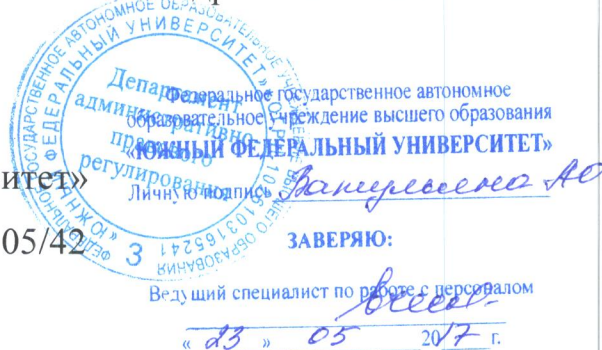 ФЕДЕРАЛЬНОЕ ГОСУДАРСТВЕННОЕ АВТОНОМНОЕ ОБРАЗОВАТЕЛЬНОЕ УЧРЕЖДЕНИЕ ВЫСШЕГО ОБРАЗОВАНИЯ
«ЮЖНЫЙ ФЕДЕРАЛЬНЫЙ УНИВЕРСИТЕТ»
Департамент
административно
правового
регулирования
3
Федеральное государственное автономное
образовательное учреждение высшего образования
«ЮЖНЫЙ ФЕДЕРАЛЬНЫЙ УНИВЕРСИТЕТ»
итет»
Личную подпись
05/42
ЗАВЕРЯЮ:
Ведущий специалист по работе с персоналом
« 23 » 05 2017 г.